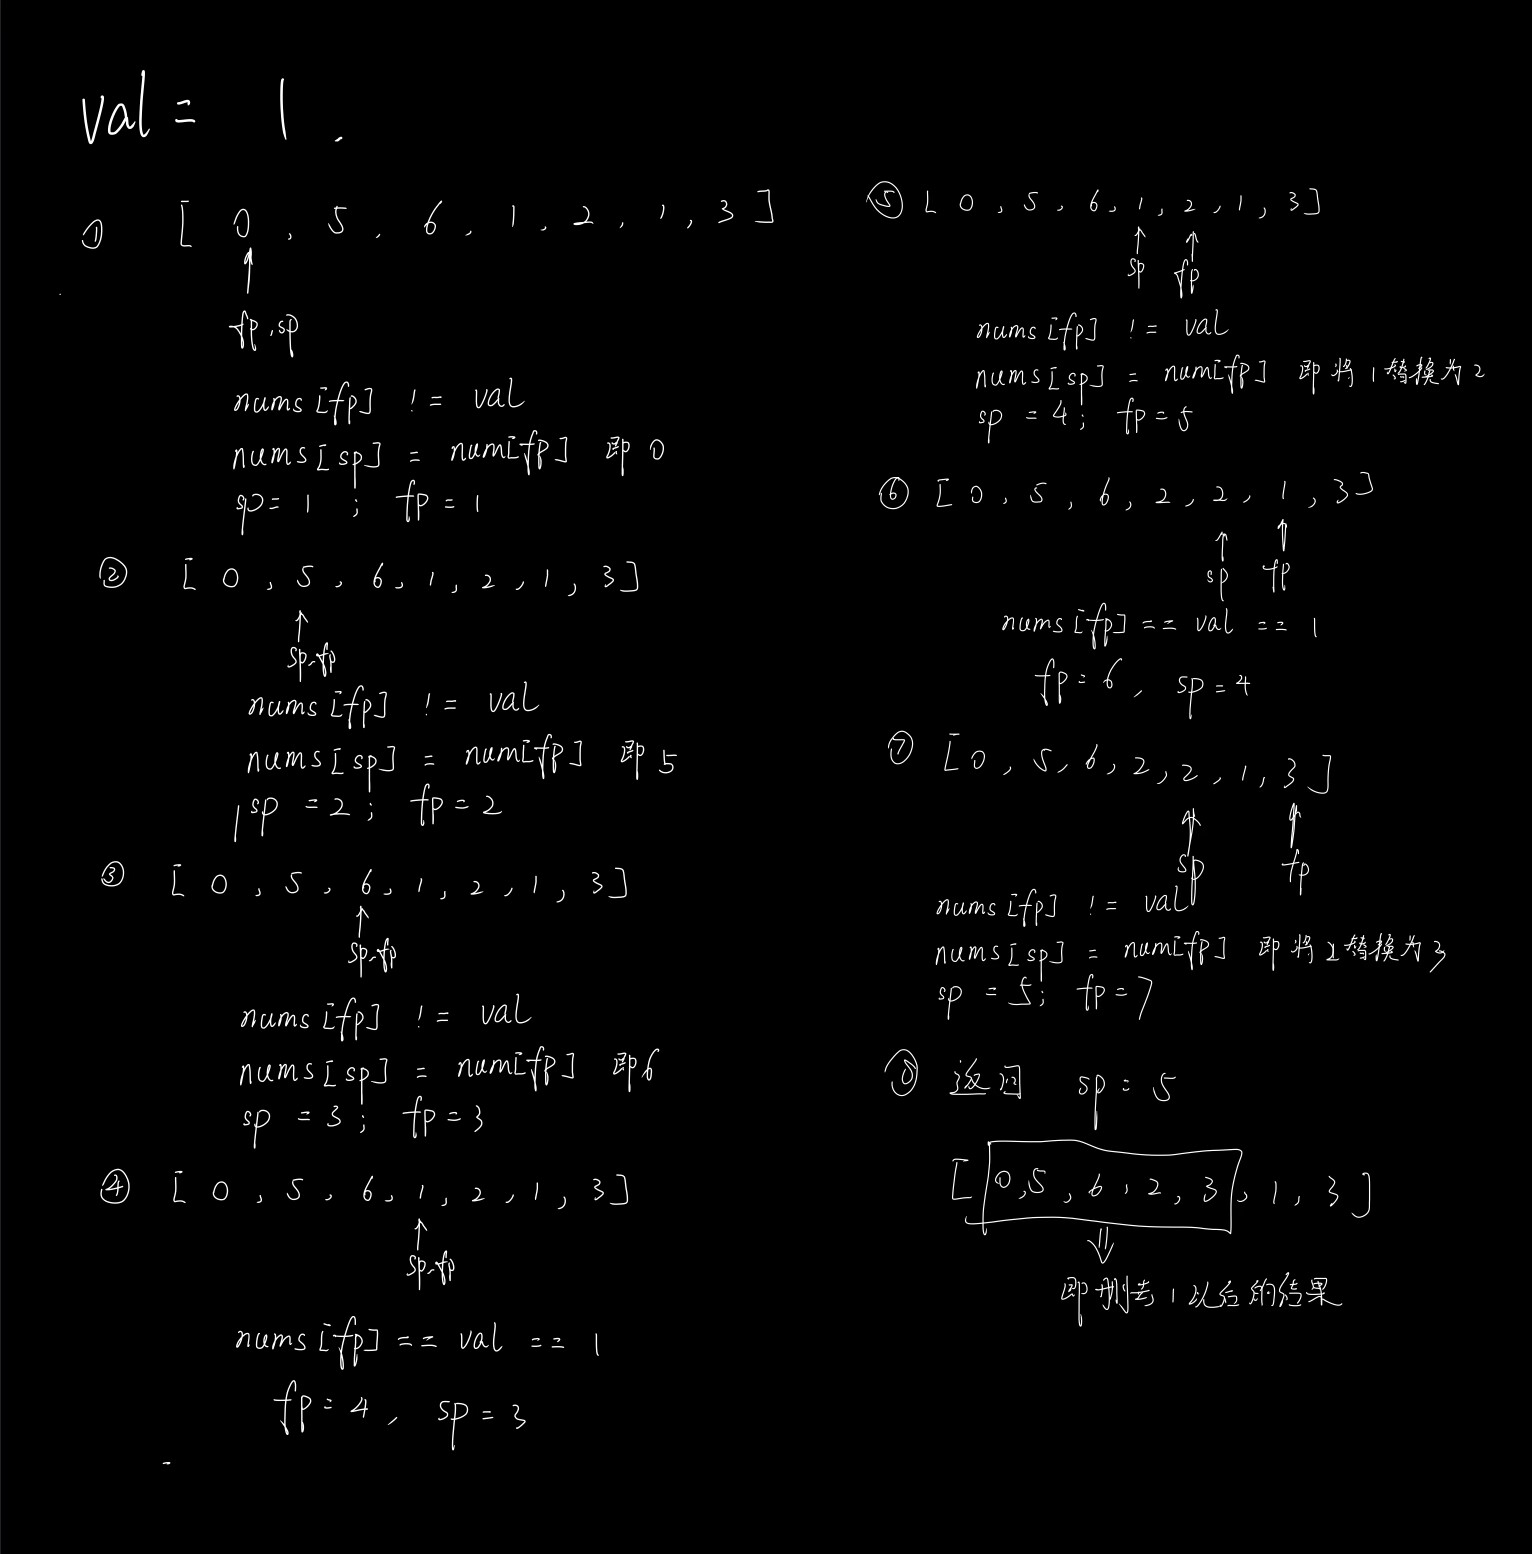 val = 1 .
① [ 0 , 5 , 6 , 1 , 2 , 1 , 3 ]
fp , sp
nums [fp] != val
nums [sp] = num[fp] 即 0
sp = 1 ; fp = 1
② [ 0 , 5 , 6 , 1 , 2 , 1 , 3 ]
sp , fp
nums [fp] != val
nums [sp] = num[fp] 即 5
sp = 2 ; fp = 2
③ [ 0 , 5 , 6 , 1 , 2 , 1 , 3 ]
sp , fp
nums [fp] != val
nums [sp] = num[fp] 即 6
sp = 3 ; fp = 3
④ [ 0 , 5 , 6 , 1 , 2 , 1 , 3 ]
sp , fp
nums [fp] == val == 1
fp = 4 , sp = 3
⑤ [ 0 , 5 , 6 , 1 , 2 , 1 , 3 ]
sp fp
nums [fp] != val
nums [sp] = num[fp] 即将1替换为2
sp = 4 ; fp = 5
⑥ [ 0 , 5 , 6 , 2 , 2 , 1 , 3 ]
sp fp
nums [fp] == val == 1
fp = 6 , sp = 4
⑦ [ 0 , 5 , 6 , 2 , 2 , 1 , 3 ]
sp fp
nums [fp] != val
nums [sp] = num[fp] 即将2替换为3
sp = 5 ; fp = 7
⑧ 返回 sp = 5
[ 0 , 5 , 6 , 2 , 3 , 1 , 3 ]
即删去1以后的结果